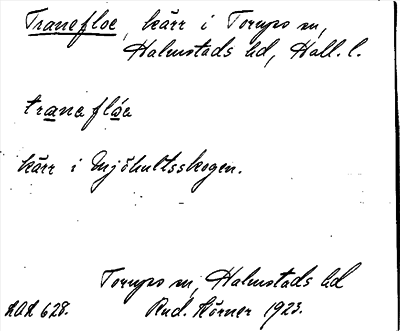 Tranefloe, kärr i Torups sn,
Halmstads hd, Hall. l.
tranefloa
kärr i Mjöhultsskogen.
Torups sn, Halmstads hd
AOR 628. Rud. Körner 1923.